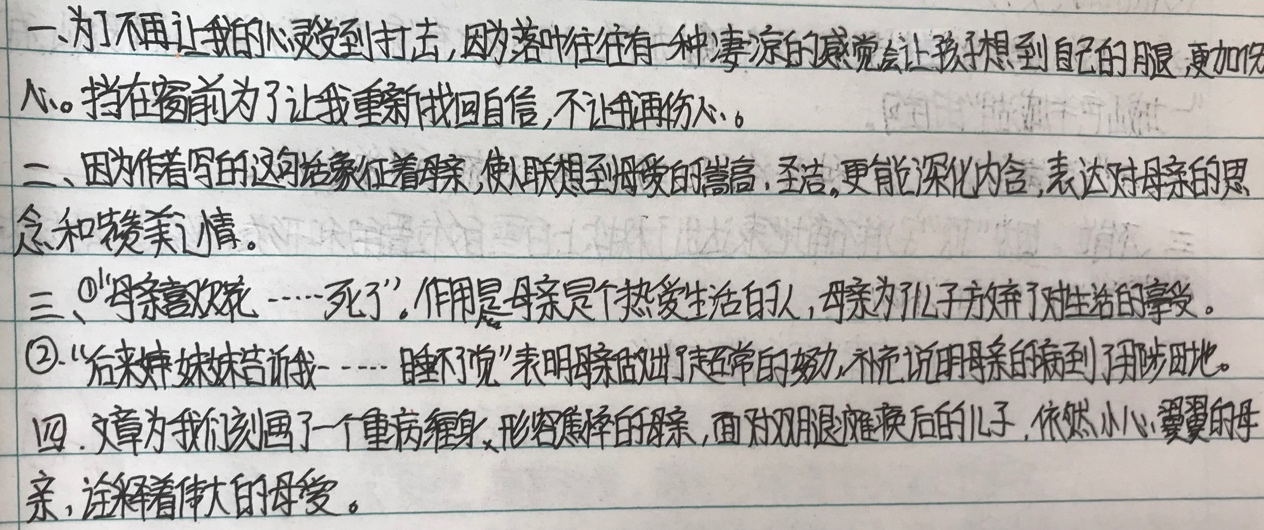 一、为了不再让我的心灵受到打击,因为落叶往往有一种凄凉的感觉会让孩子想到自己的腿,更加伤
心。挡在窗前为了让我重新找回自信,不让我再伤心。
二、因为作者写的这句话象征着母亲,使人联想到母爱的嵩高、圣洁。更能深化内含,表达对母亲的思
念和赞美之情。
三、①“母亲喜欢花……死了”。作用是母亲是个热爱生活的人,母亲为了儿子放弃了对生活的享受。
②.“后来妹妹告诉我……睡不了觉”表明母亲做出了超常的努力,补充说明母亲的病到了那步田地。
四.文章为我们刻画了一个重病缠身、形容焦悴的母亲,面对双腿瘫痪后的儿子,依然小心翼翼的母
亲,诠释着伟大的母爱。